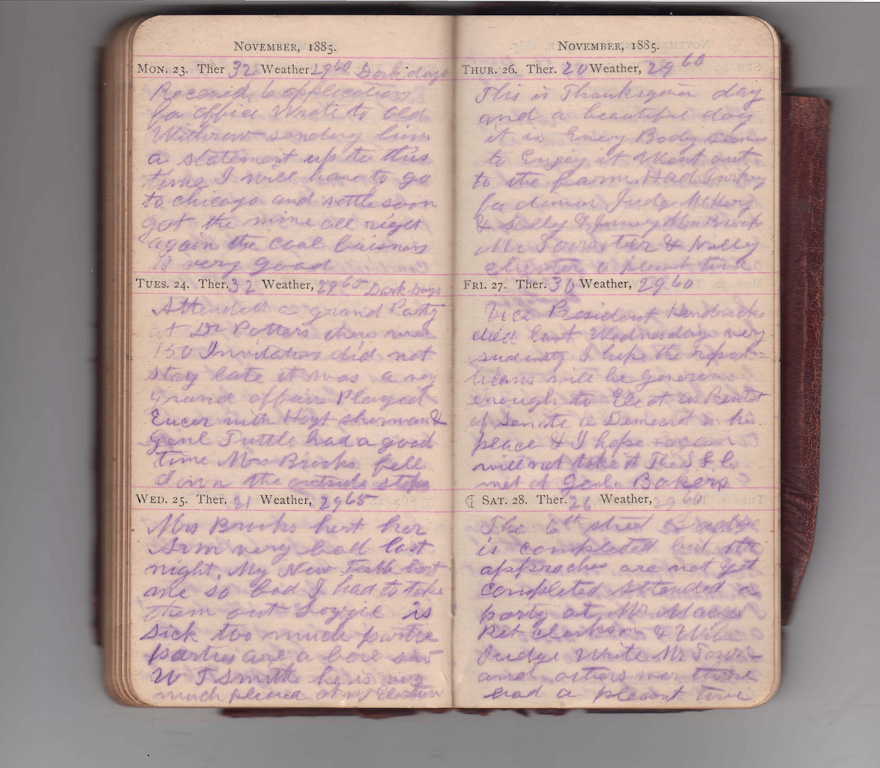 NOVEMBER, 1885.
MON. 23. Ther 32 Weather 29 60 Dark days
Received 6 applications
for Office Wrote to Old
Withrow sending him
a statement up to this
time I will have to go
to chicago and settle soon
got the mine all right
again the coal buisness
is very good
TUES. 24. Ther. 32 Weather, 29 65 Dark days
Attended a grand Party
at Dr Potters there was
150 Invitations did not
stay late it was a
Grand affair Played
Eucer with Hoyt sherman &
Genl Tuttle had a good
time Mrs Brooks fell
down the outside steps
WED. 25. Ther. 21 Weather, 29 65
Mrs Brooks hert her
Arm very bad last
night. My New Teeth hert
me so bad I had to take
them out is
sick too much
parties are a bore saw
W T Smith he is very
much pleased at my Election
NOVEMBER, 1885.
THUR. 26. Ther. 20 Weather, 29 60
This is Thanksgivin day
and a beautiful day
it is Evry Body seems
to Enjoy it Went out
to the farm Had Turkey
for dinner
& Sally & Mrs Brooks
Mr & Nelly
a plesent time
FRI. 27. Ther. 30 Weather, 29 60
Vice President Hendricks
died last Wednesday very
sudenly I hope the Repub=
licans will be Generous
enough to Elect as Presidt
of Senate a Democrat in his
place & I hope
will not take it The
met at Genl Bakers
SAT. 28. Ther. 26 Weather, 29 60
The 6th street Bridge
is completed but the
approaches are not yet
completed Attended a
party at Mr
Ret clarkson & Wife
Judge Write Mr
and others wer there
had a plesent time